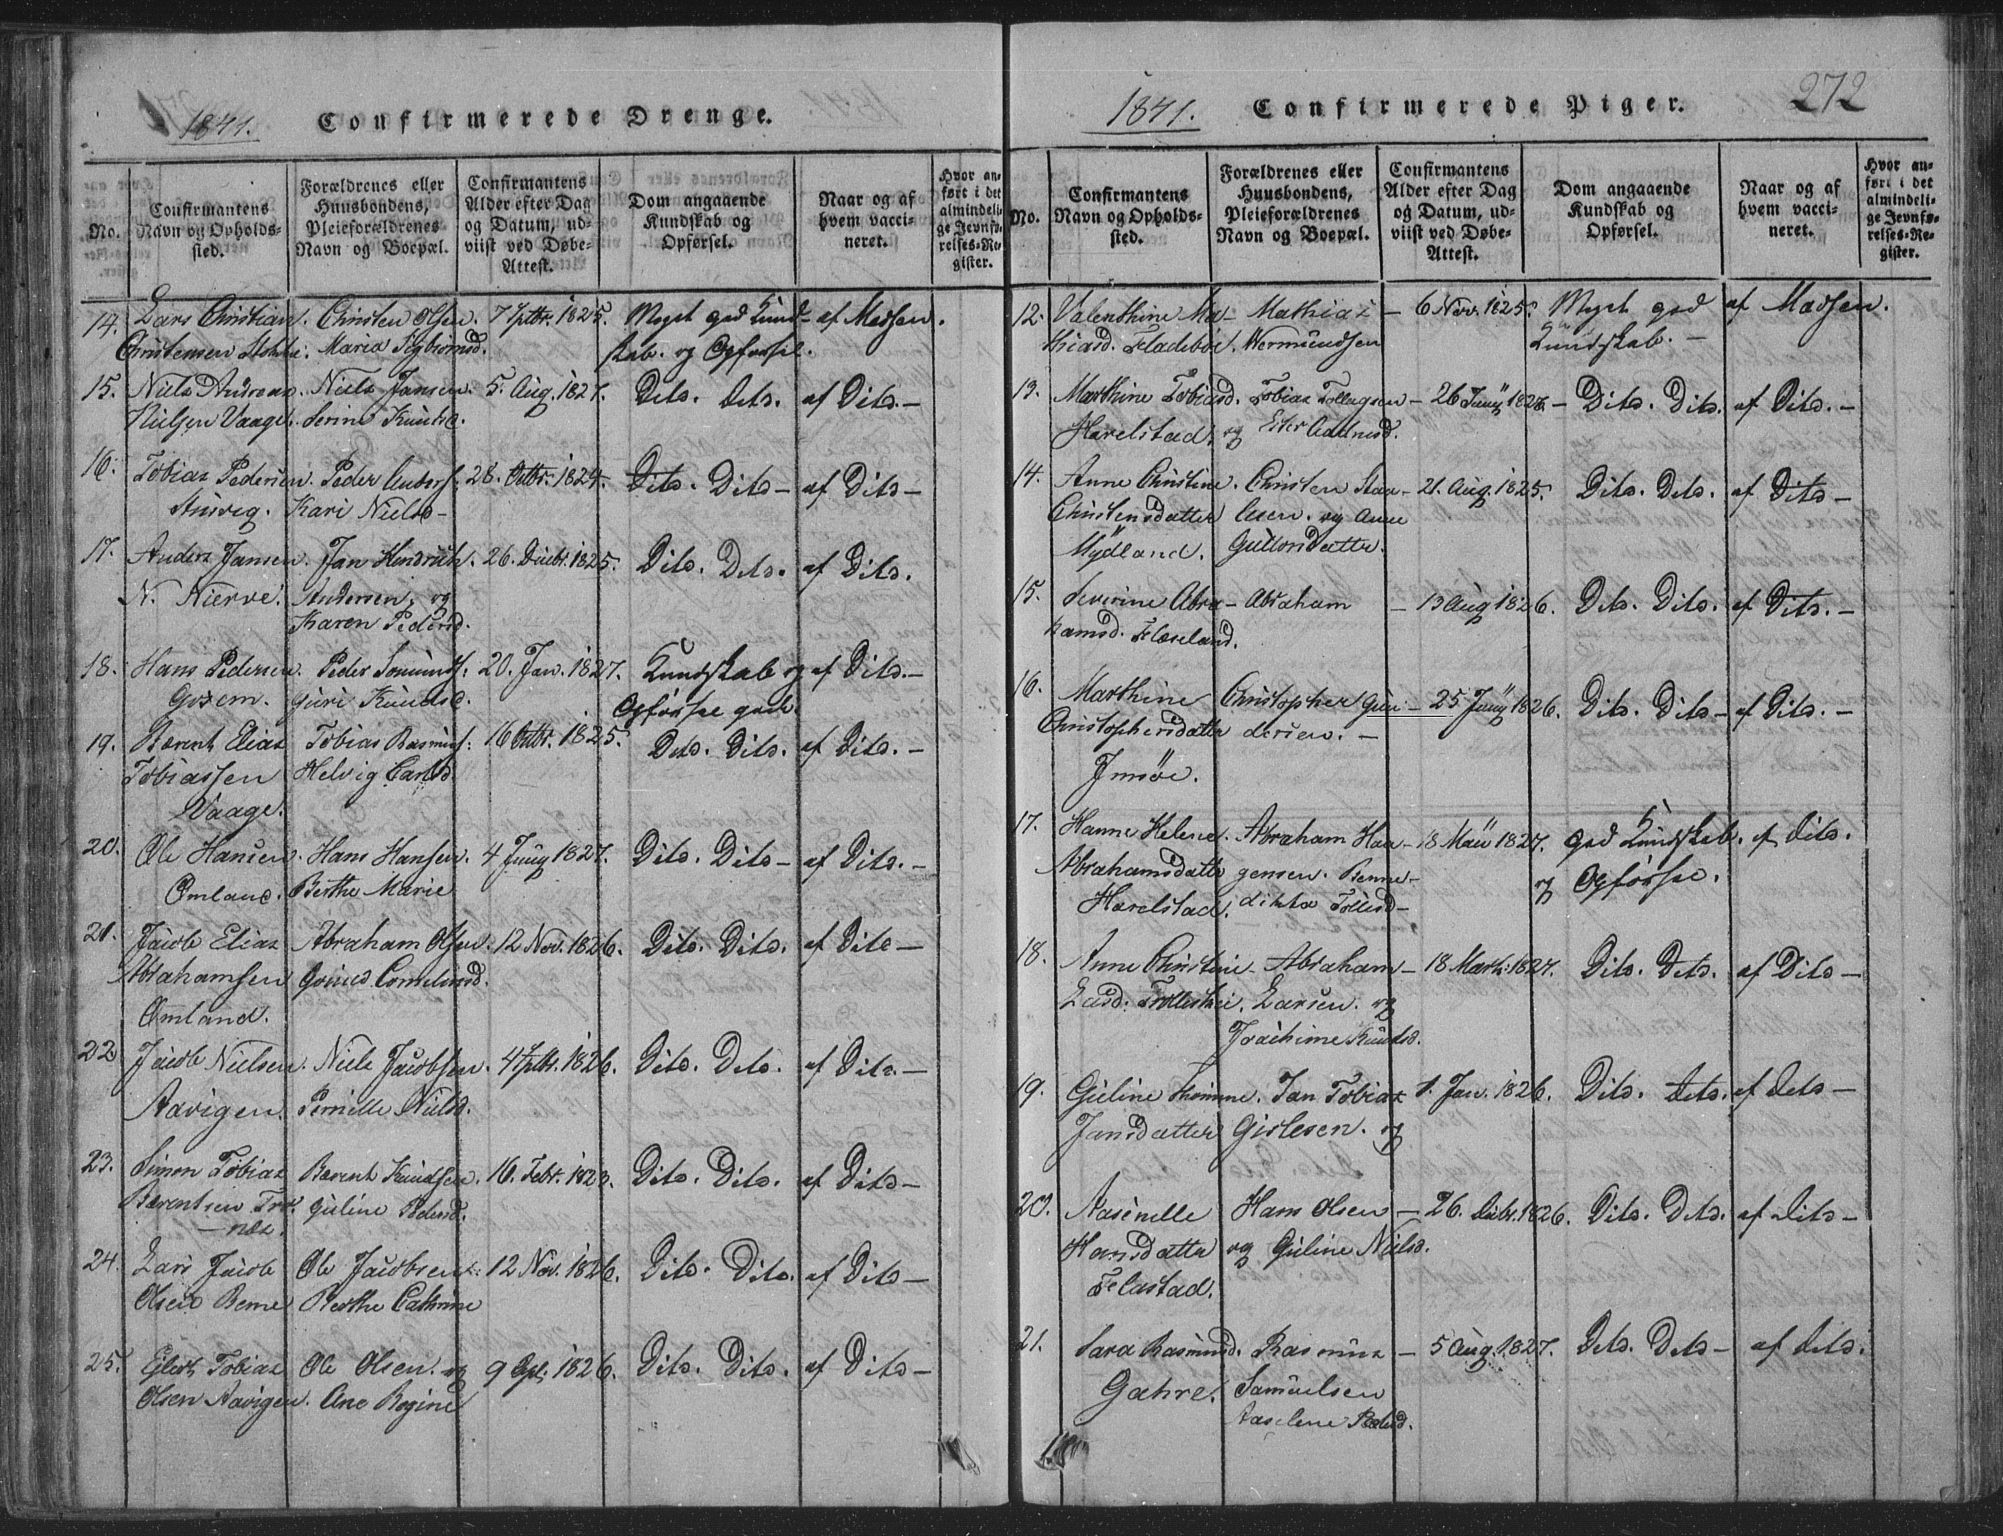 1841. Confirmerede Drenge.
No.
Confirmantens Navn og Opholdssted.
Forældrenes eller Huusbondens, Pleieforældrenes Navn og Boepæl.
Confirmantens Alder efter Dag og Datum, udviist ved Døbe-Attest.
Dom angaaende Kundskab og Opførsel.
Naar og af hvem vaccineret.
Hvor anført i det almindelige Jevnførelses-Register.
14. Lars Christian Christen Olsen. 7 Sptbr. 1825. Meget god Kund- af Madsen.
Christensen Maria skab. og Opførsel.
15. Niels Andreas Niels Jansen. 5. Aug. 1827. Dito. Dito. af Dito. —
Nielsen Vaage. Serine Knuts.
16. Tobias Pedersen. Peder Anders. 28. Octbr. 1824. Dito. Dito — af Dito —
Kari Niels —
17. Anders Jansen. Jan Hendrich. 26. Decbr. 1825. Dito. Dito. af Dito.
N. Nierve. Andersen. og
Karen Pedersd.
18. Hans Pedersen. Peder 20. Jan. 1827. Kundskab og af Dito. —
Gosem. Guri Knudsd. Opførsel god.
19. Berent Elias Tobias Rasmus: 16 Octbr. 1825. Dito. Dito. af Dito. —
Tobiassen Helvig Carlsd.
Vaage.
20. Ole Hansen. Hans Hansen. 4 Juny 1827. Dito. Dito — af Dito. —
Omland. Berthe Marie
21. Jacob Elias Abraham Olsen. 12 Nov. 1826. Dito. Dito. af Dito —
Abrahamsen
Omland.
22 Jacob Nielsen. Niels Jacobsen. 4 Sptbr. 1826. Dito. Dito. af Dito. —
Aavigen. Pernille Nielsd.
23. Simon Tobias Berent Knudsen. 16. Febr. 1823. Dito. Dito. af Dito —
Berentsen Guline Pedersd.
— næs.
24. Lars Jacob Ole Jacobsen 12 Nov. 1826. Dito. Dito. af Dito —
Olsen Berthe Cathrine
25. Eilert Tobias Ole Olsen. og 9 Apl. 1826. Dito. Dito. af Dito —
Olsen Aavigen. Ane Regine
1841. Confirmerede Piger. 272
No.
Confirmantens Navn og Opholdssted.
Forældrenes eller Huusbondens, Pleieforældrenes Navn og Boepæl.
Confirmantens Alder efter Dag og Datum, udviist ved Døbe-Attest.
Dom angaaende Kundskab og Opførsel.
Naar og af hvem vaccineret.
Hvor anført i det almindelige Jevnførelses-Register.
12. Valenthine Ma- Mathias — 6 Nov. 1825. Meget god af Madsen.
thiasd. Fladebøe. Wermundsen Kundskab. —
13. Marthine Tobiasd. Tobias Tollagsen — 26 Juny Dito. Dito. af Dito. —
Harelstad. og
14. Anne Christine. Christen — 21. Aug. 1825. Dito. Dito. af Dito —
Christensdatter og Anne
Mydland. Guttormsdatter.
15. Severine Abra- Abraham — 13 Aug 1826. Dito. Dito. af Dito. —
hamsd. Flaseland.
16. Marthine Christopher Gun- — 25 Juny 1826. Dito. Dito — af Dito. —
Christophersdatter dersen. —
Imsøe.
17. Hanne Helene. Abraham Haa- — 18 1827. god Kundskab. af Dito.
Abrahamsdatter gensen. Benne- og Opførsel.
Harelstad. dikta
18. Anne Christine — Abraham — 18 Marts 1827. Dito. Dito. af Dito —
Larsen. og
Joachime Knudsd.
19. Guline Jan Tobias 1. Jan. 1826. Dito. Dito. af Dito —
Jansdatter Gislesen. og
20. Aasenelle Hans Olsen — 26. Decbr. 1826. Dito. Dito. af Dito —
Hansdatter og Guline Nielsd.
Felastad.
21. Sara Rasmusd. Rasmus — 5 Aug 1827. Dito. Dito — af Dito.
Gahre. Samuelsen
Aaselene